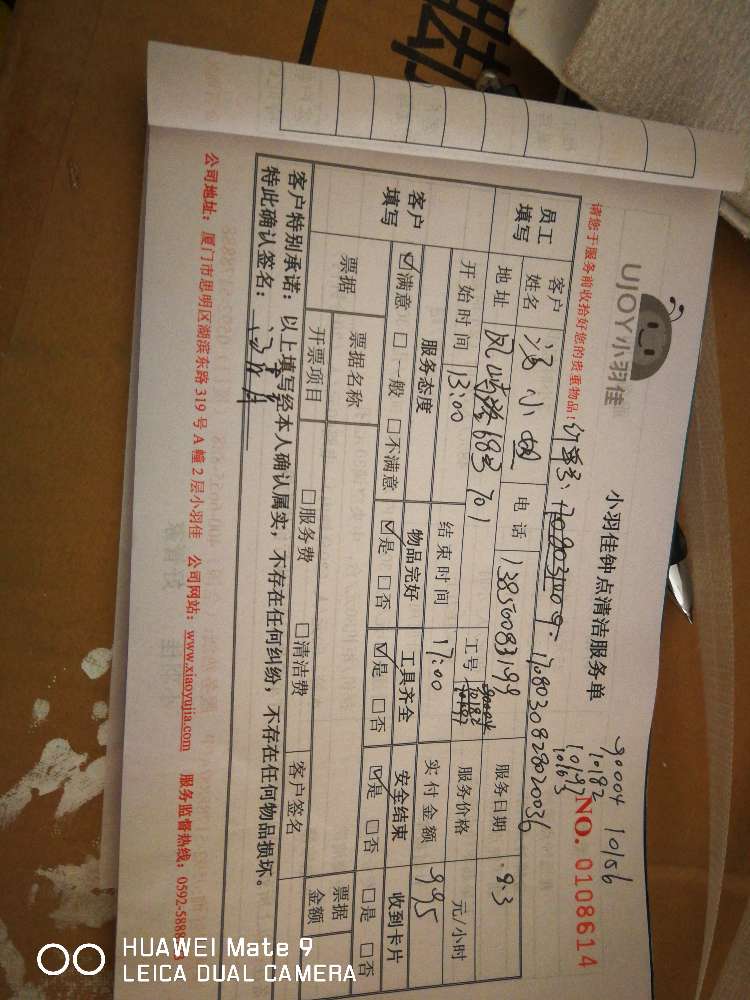 UJOY小羽佳
小羽佳钟点清洁服务单
90004 10156
10182
10192
10163
NO. 0108614
请您于服务前收拾好您的贵重物品!
1708030828020036
员工填写
客户姓名
汤小姐
电话
13850083199
服务日期
8.3
地址
683 701
工号
服务价格
元/小时
开始时间
13:00
结束时间
17:00
实付金额
995
客户填写
服务态度
物品完好
工具齐全
安全结束
收到卡片
☑满意 □一般 □不满意
☑是 □否
☑是 □否
☑是 □否
□是 □否
票据
票据名称
票据金额
开票项目
□服务费 □清洁费
客户签名
客户特别承诺:以上填写经本人确认属实,不存在任何纠纷,不存在任何物品损坏。
特此确认签名:
公司地址:厦门市思明区湖滨东路 319 号 A 幢 2 层小羽佳 公司网站:www.xiaoyujia.com 服务监督热线:0592-5888
HUAWEI Mate 9
LEICA DUAL CAMERA